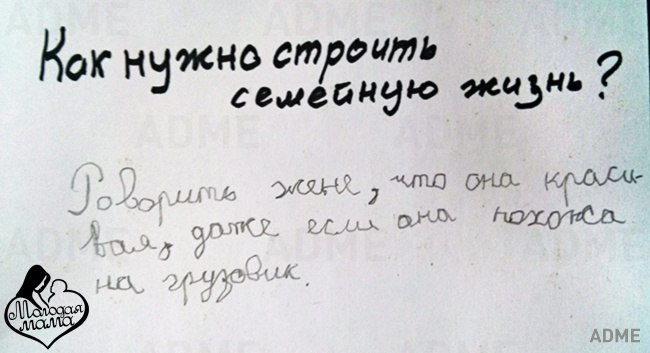 Как нужно строить
семейную жизнь?
Говорить жене, что она краси-
вая, даже если она похожа
на грузовик.
Молодая
мама
ADME